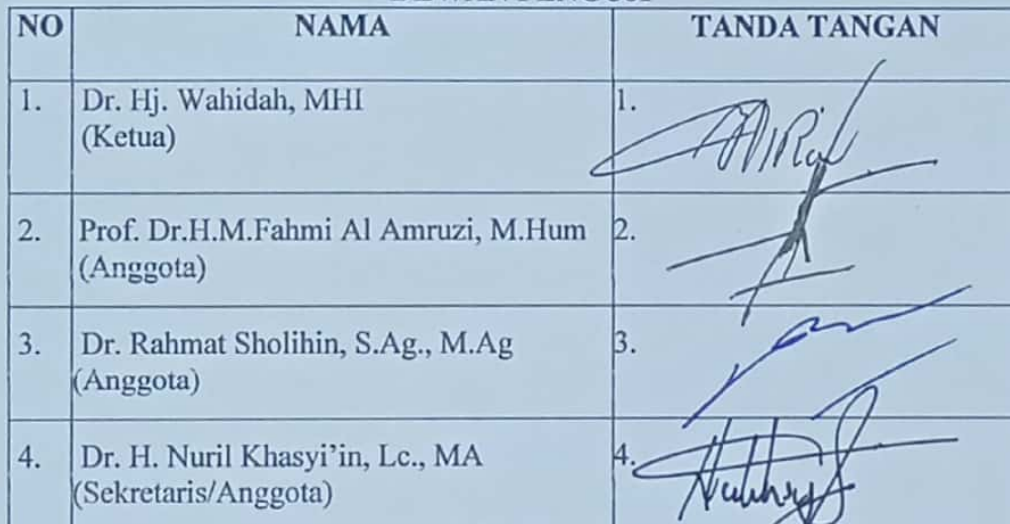 NO NAMA TANDA TANGAN
1. Dr. Hj. Wahidah, MHI 1.
(Ketua)
2. Prof. Dr.H.M.Fahmi Al Amruzi, M.Hum 2.
(Anggota)
3. Dr. Rahmat Sholihin, S.Ag., M.Ag 3.
(Anggota)
4. Dr. H. Nuril Khasyi’in, Lc., MA 4.
(Sekretaris/Anggota)